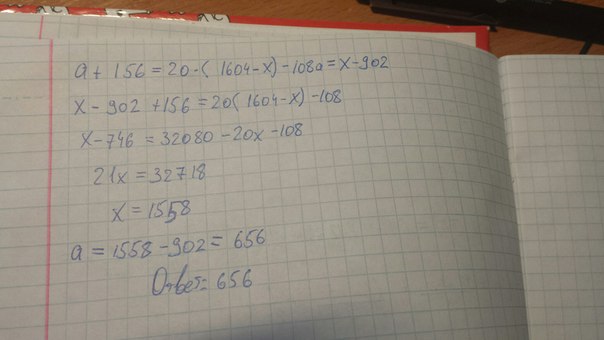 a + 156 = 20 · (1604 - x) - 108a = x - 902
x - 902 + 156 = 20(1604 - x) - 108
x - 746 = 32080 - 20x - 108
21x = 32718
x = 1558
a = 1558 - 902 = 656
Ответ = 656